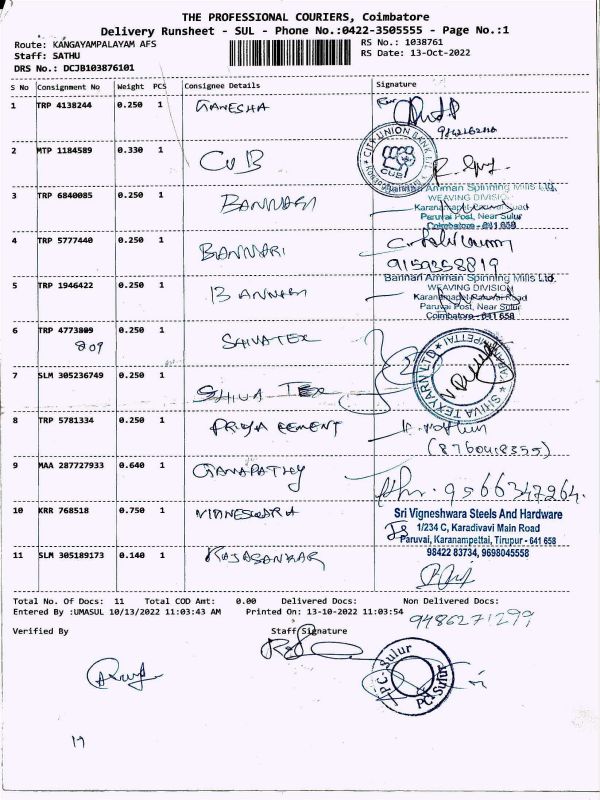 THE PROFESSIONAL COURIERS, Coimbatore
Delivery Runsheet - SUL - Phone No.:0422-3505555 - Page No.:1
Route: KANGAYAMPALAYAM AFS
RS No.: 1038761
Staff: SATHU
RS Date: 13-Oct-2022
DRS No.: DCJB103876101
S No Consignment No Weight PCS Consignee Details Signature
1 TRP 4138244 0.250 1 GANESHA
2 MTP 1184589 0.330 1 CUB
CITY UNION BANK LTD
CUB
3 TRP 6840085 0.250 1 BANNARI
Bannari Amman Spinning Mills Ltd.
WEAVING DIVISION
Paruvai Post, Near Sulur
Coimbatore - 641 658
4 TRP 5777440 0.250 1 BANNARI
9159358819
5 TRP 1946422 0.250 1 BANNARI
Bannari Amman Spinning Mills Ltd.
WEAVING DIVISION
Karanampet Road
Paruvai Post, Near Sulur
Coimbatore - 641 658
6 TRP 4773809 0.250 1 SHIVA TEX
809
7 SLM 305236749 0.250 1 SHIVA TEX
SHIVA TEXYARN LTD
8 TRP 5781334 0.250 1 PRIYA CEMENT
(8760418355)
9 MAA 287727933 0.640 1 GANAPATHY
9566347264
10 KRR 768518 0.750 1 VIGNESWARA
Sri Vigneshwara Steels And Hardware
1/234 C, Karadivavi Main Road
Paruvai, Karanampettai, Tirupur - 641 658
98422 83734, 9698045558
11 SLM 305189173 0.140 1 RAJASANKAR
Total No. Of Docs: 11 Total COD Amt: 0.00 Delivered Docs: Non Delivered Docs:
Entered By :UMASUL 10/13/2022 11:03:43 AM Printed On: 13-10-2022 11:03:54
9486271299
Verified By Staff Signature
TPC-Sulur
TPC-Sulur